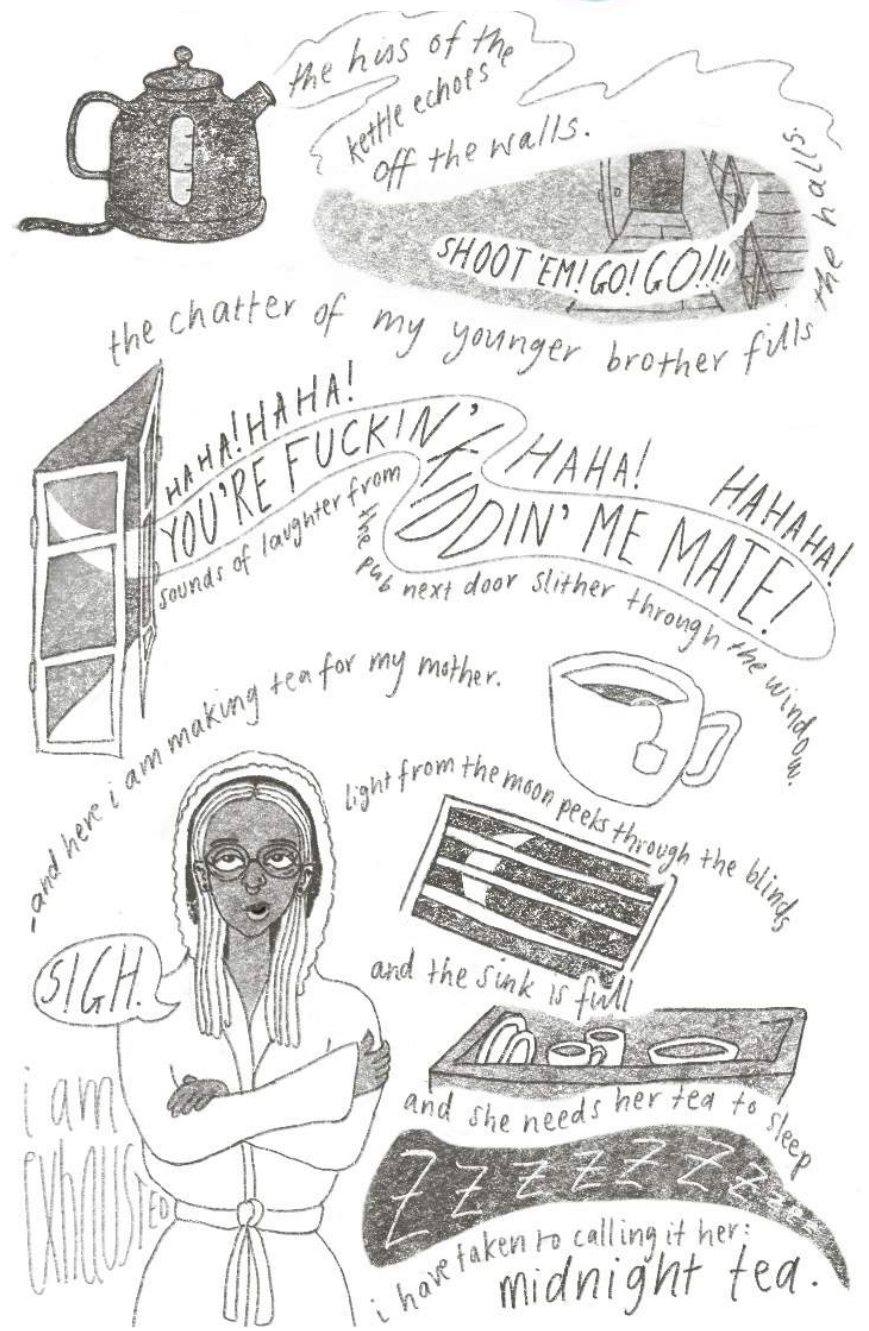 the hiss of the
kettle echoes
off the walls.
SHOOT 'EM! GO! GO!!!!
the chatter of my younger brother fills the halls.
HAHA! HAHA!
YOU'RE FUCKIN' KIDDIN' ME MATE!
HAHA!
HAHAHA!
sounds of laughter from the pub next door slither through the window.
-and here i am making tea for my mother.
light from the moon peeks through the blinds
SIGH.
and the sink is full
i am
exhausted
and she needs her tea to sleep
Z Z Z Z Z Z Z Z
i have taken to calling it her:
midnight tea.